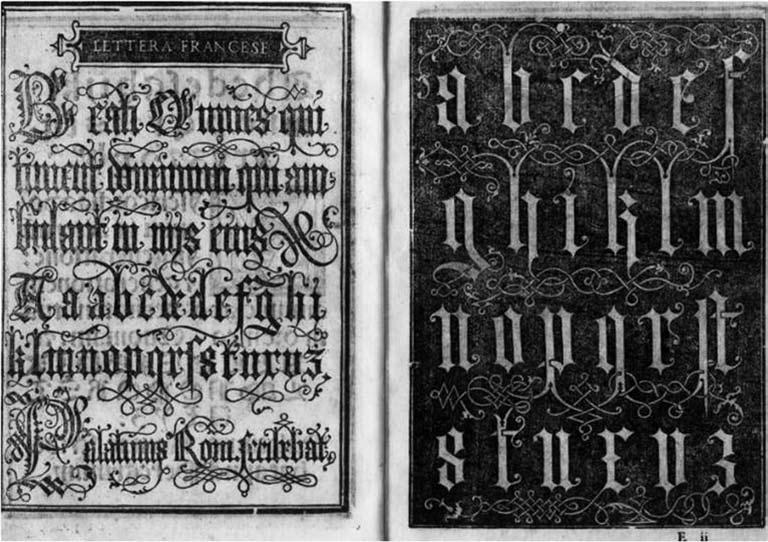 LETTERA FRANCESE
Beati Omnes qui
timent dominum qui am
bulant in viis eius
A a a b c d e f g h i
k l m n o p q r ſ s t u x y z
Palatinus Rom. scribebat
a b c d e f
g h i k l m
n o p q r ſt
s t u x y z
E ii